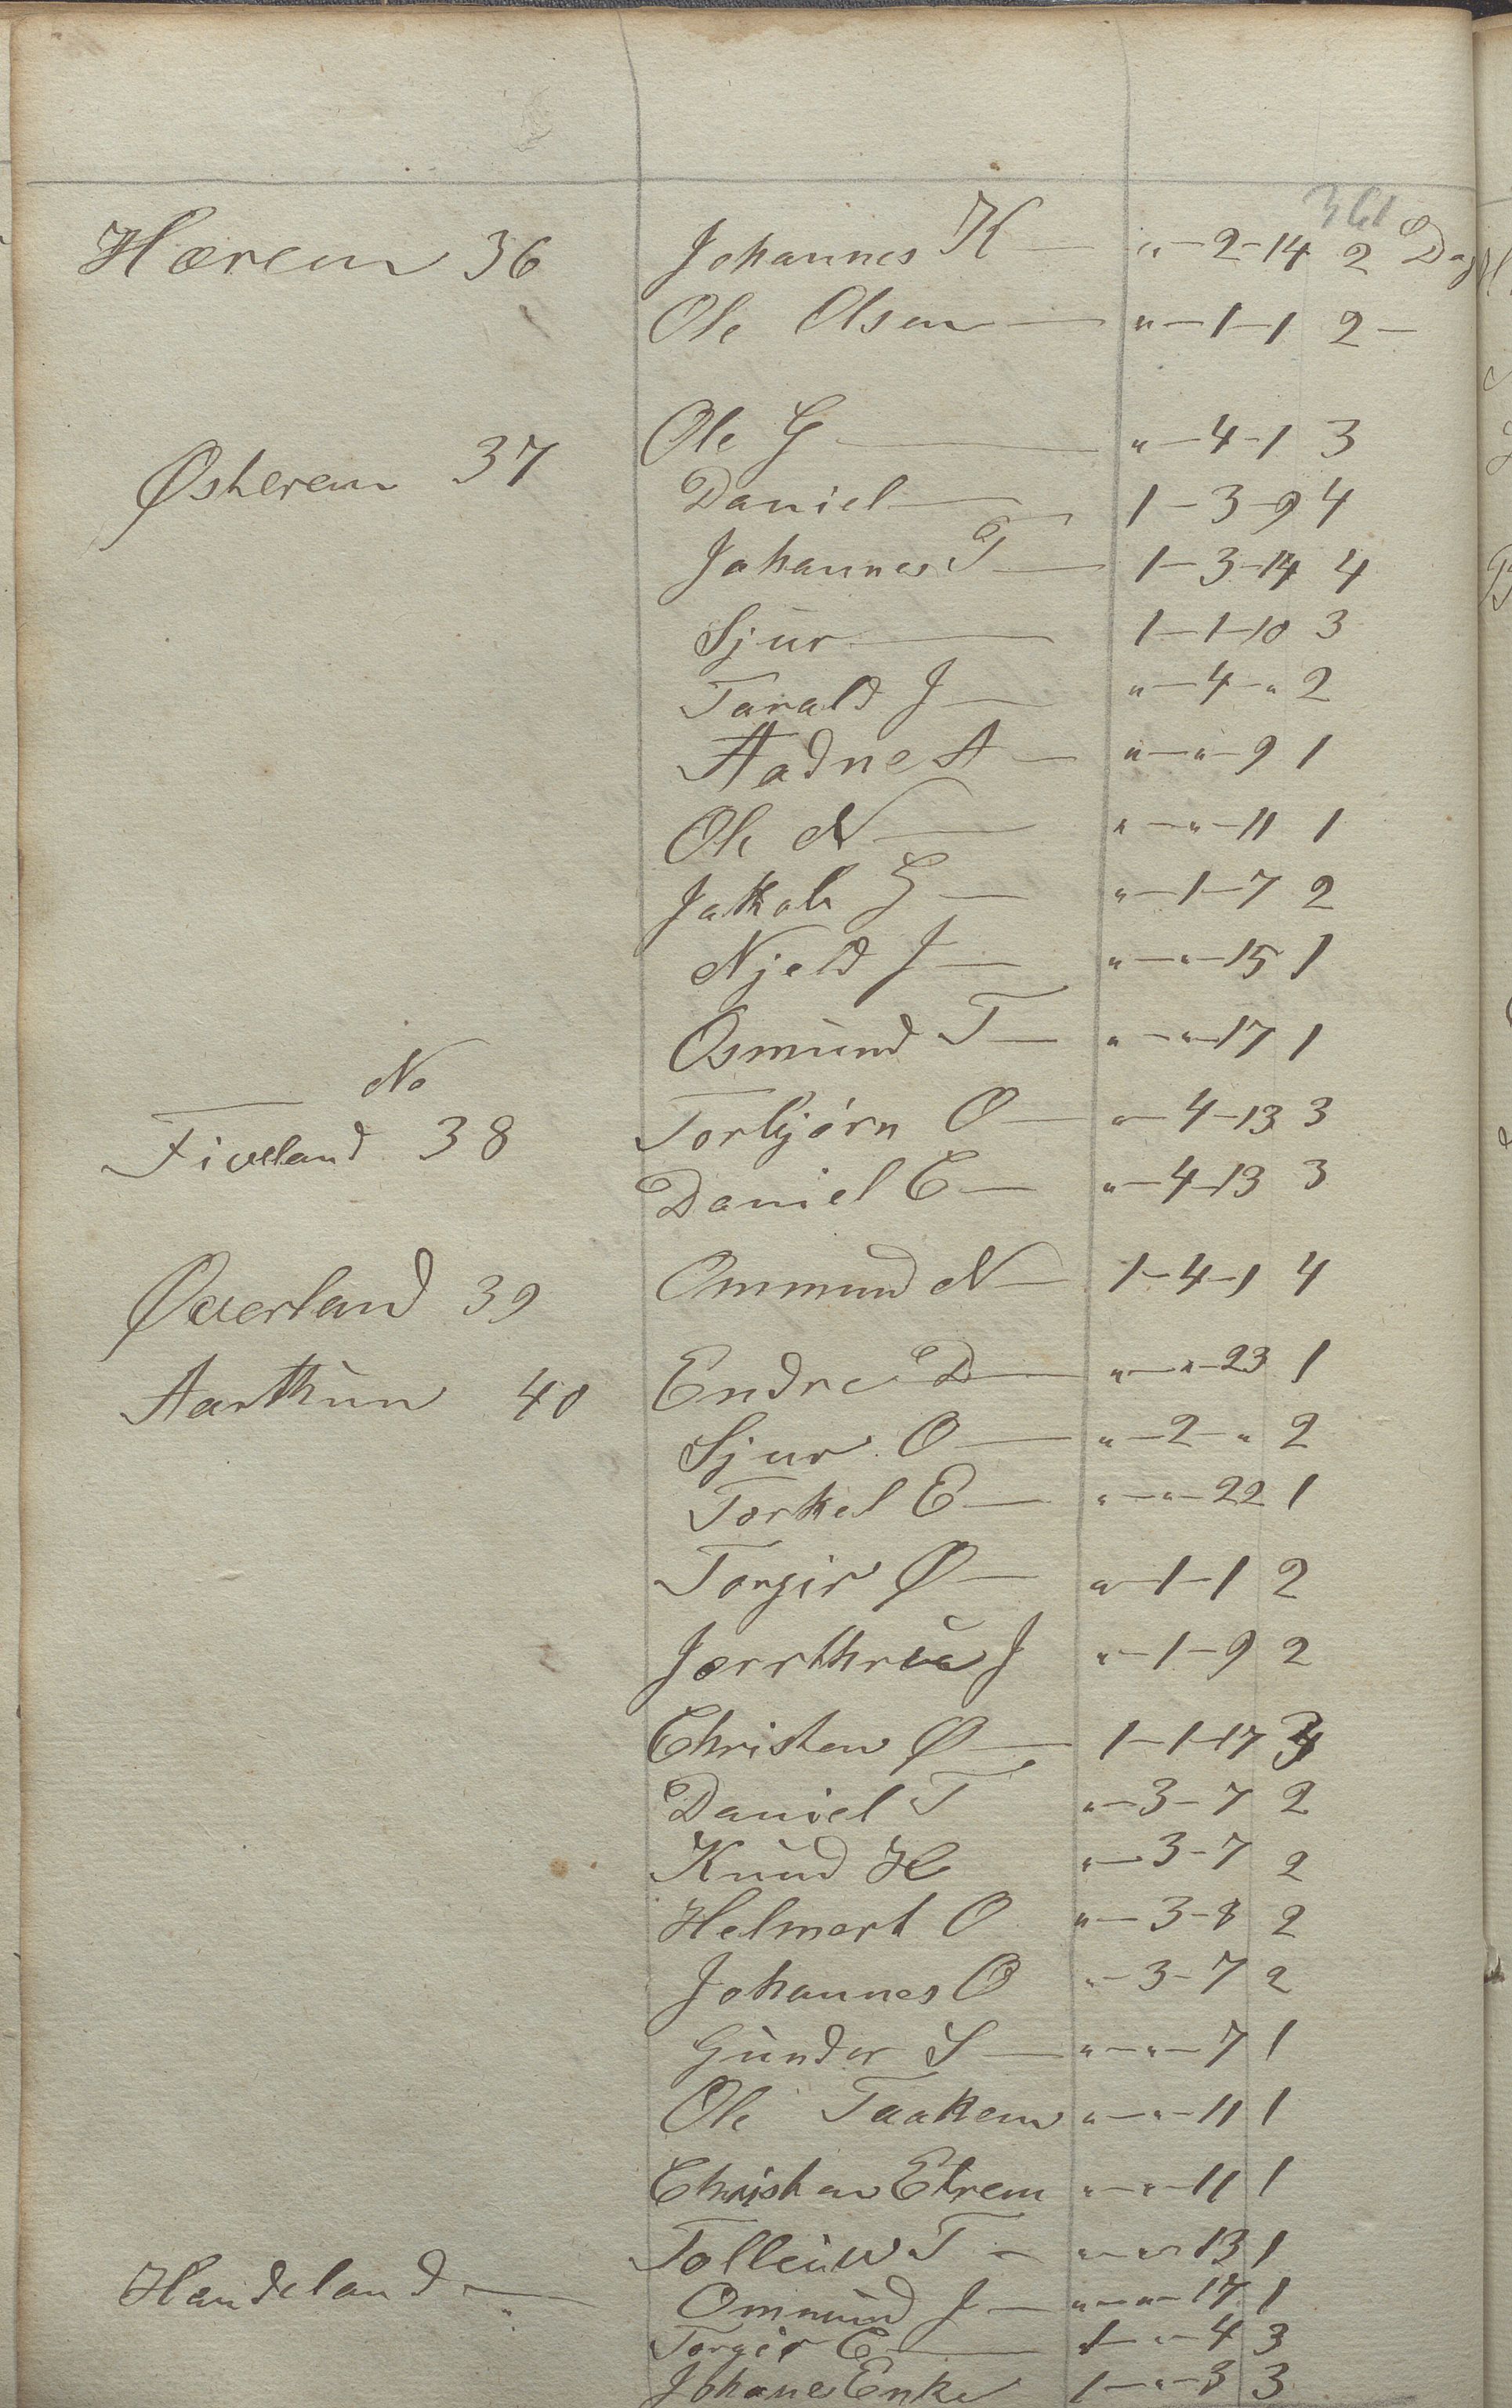 361
Hærem 36 Johannes K — " — 2 - 14 2 Dag
Ole Olsen — " — 1 — 1 2 —
Østerem 37 Ole G — " — 4 - 1 3
Daniel — 1 — 3 - 9 4
Johannes T — 1 — 3 - 14 4
Sjur — 1 — 1 - 10 3
Tarald J — " — 4 - " 2
Aadne A — " — " — 9 1
Ole N — " — " — 11 1
Jakob G — " — 1 — 7 2
Njeld J — " — " — 15 1
Osmund T — " — " — 17 1
No
Fiveland 38 Torbjørn O — " — 4 - 13 3
Daniel E — " — 4 - 13 3
Øverland 39 Ommund N — 1 — 4 - 1 4
Aarthun 40 Endre D — " — " - 23 1
Sjur O — " — 2 - " 2
Torkel E — " — " — 22 1
Torgir Ø — " — 1 - 1 2
J " — 1 — 9 2
Christen Ø — 1 — 1 - 17
Daniel T " — 3 - 7 2
Knud H " — 3 - 7 2
Helmert O " — 3 - 8 2
Johannes O " — 3 - 7 2
Gunder S — " — " — 7 1
Ole Taakem " — " — 11 1
Christen Etrem " — " — 11 1
Tolleiv T — " — " 13 1
Handeland — Ommund J — " — " — 17 1
Torgir E — 1 — " — 4 3
Johane Enke 1 — " — 8 3